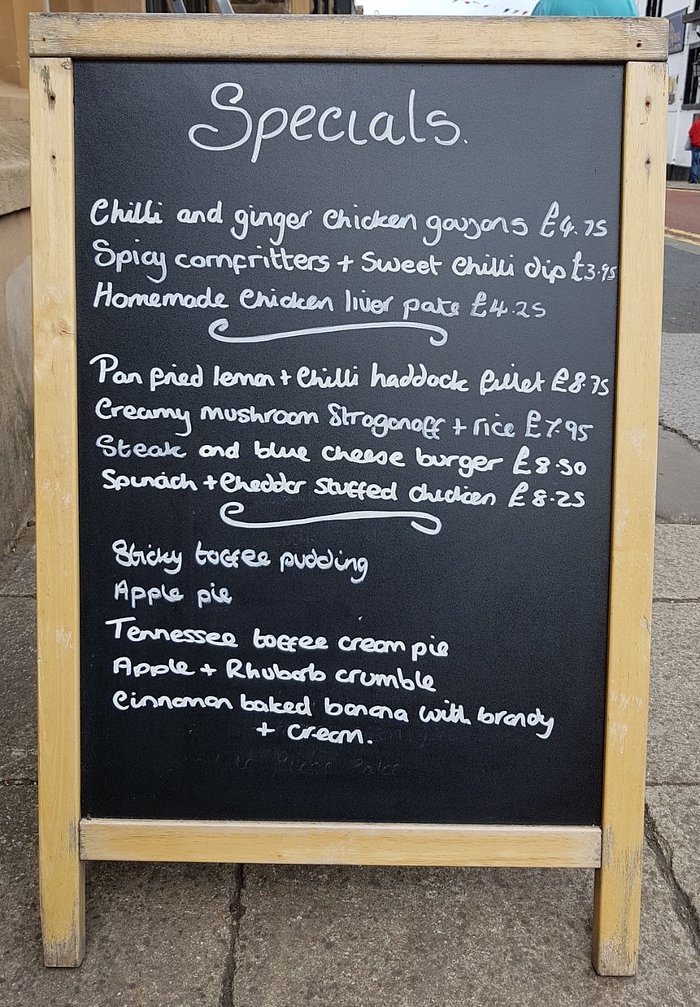 Specials.
Chilli and ginger chicken goujons £4.75
Spicy cornfritters + Sweet Chilli dip £3.95
Homemade Chicken liver pate £4.25
Pan fried lemon + Chilli haddock fillet £8.75
Creamy mushroom Strogonoff + rice £7.95
Steak and blue cheese burger £8.50
Spinach + Cheddar stuffed chicken £8.25
Sticky toffee pudding
Apple pie
Tennessee toffee cream pie
Apple + Rhubarb crumble
Cinnamon baked banana with brandy
+ cream.